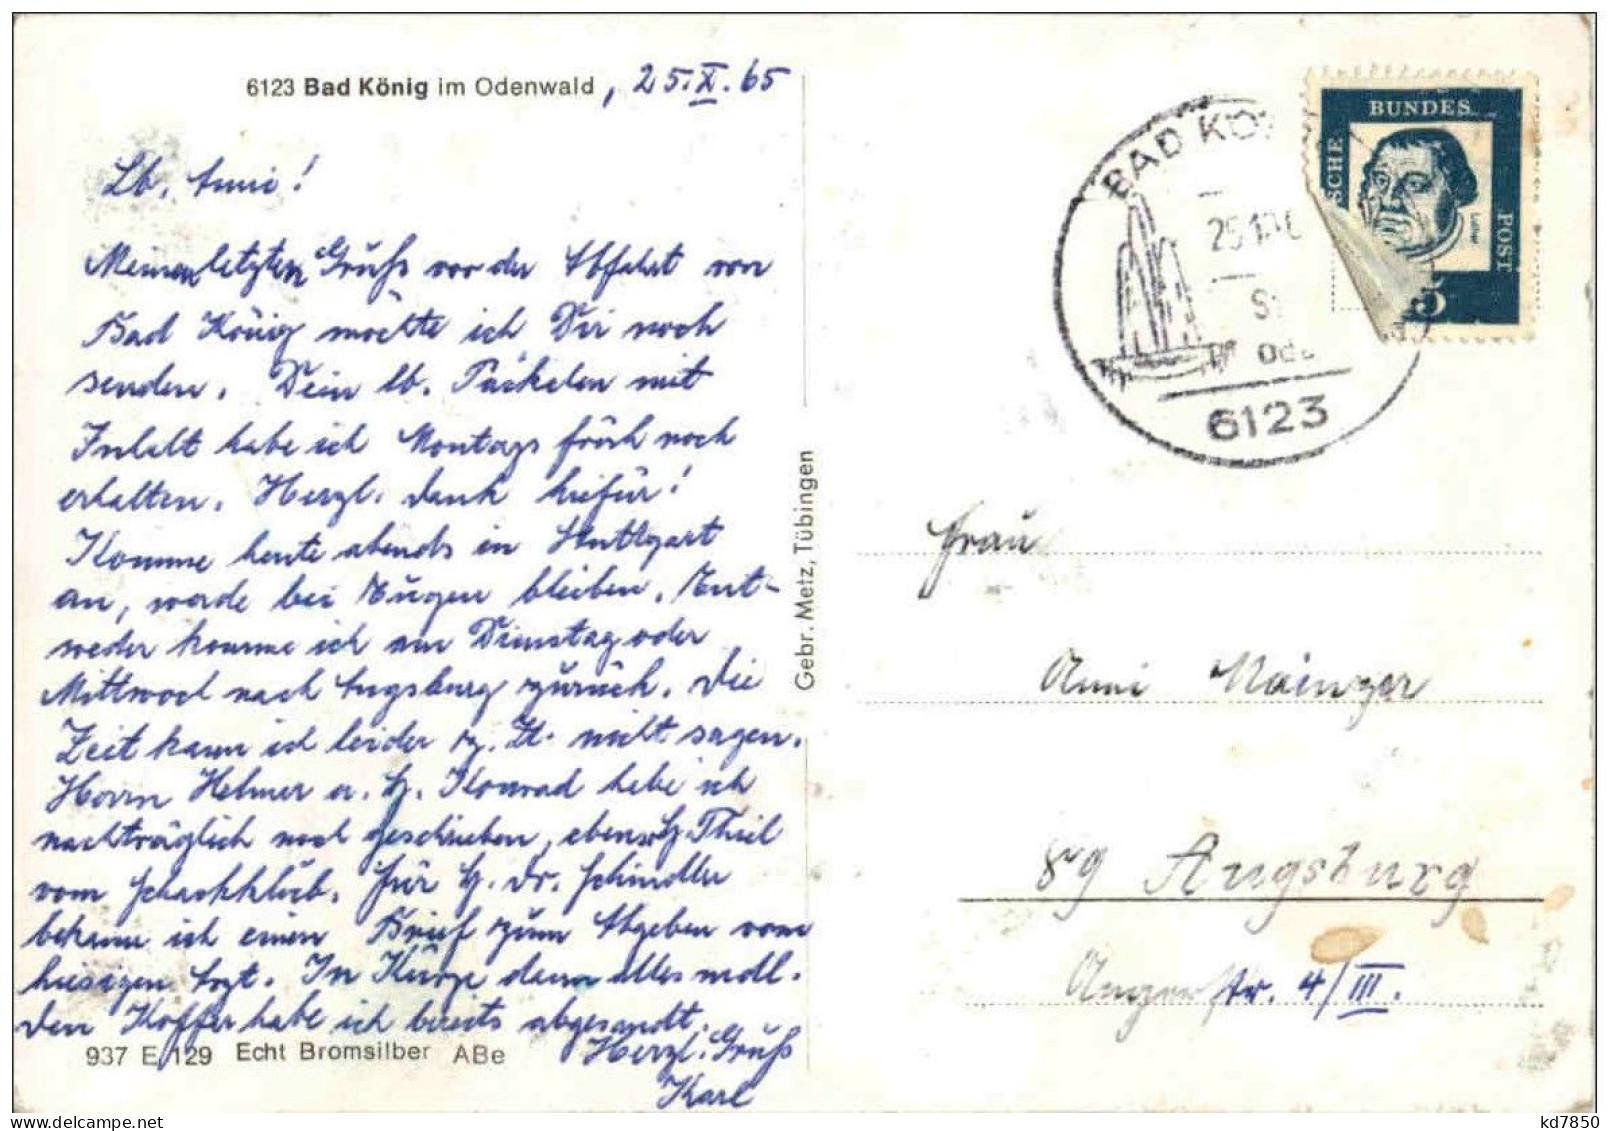 6123 Bad König im Odenwald, 25.X.65
Lb. Anni!
Meinen letzten Gruß vor der Abfahrt von
Bad König möchte ich Dir noch
senden. Dein lb. Päckchen mit
Inhalt habe ich Montags früh noch
erhalten. Herzl. Dank hiefür!
Komme heute abends in Stuttgart
an, werde bei Eugen bleiben. Ent-
weder komme ich am Dienstag oder
Mittwoch nach Augsburg zurück. Die
Zeit kann ich leider z. Zt. nicht sagen.
Herrn Helmer u. H. Konrad habe ich
nachträglich noch geschrieben, ebenso H. Theil
vom Schachklub. Für H. Dr. Schindler
bekam ich einen Brief zum Abgeben vom
hiesigen Arzt. In Kürze dann alles mdl.
Den Koffer habe ich bereits abgesandt.
Herzl. Gruß
Karl
937 E 129 Echt Bromsilber ABe
Gebr. Metz, Tübingen
BAD KÖ
25.10.6
6123
BUNDES
SCHE
POST
Luther
5
Frau
Anni Mainzer
89 Augsburg
Angerstr. 4/III.
kd7850